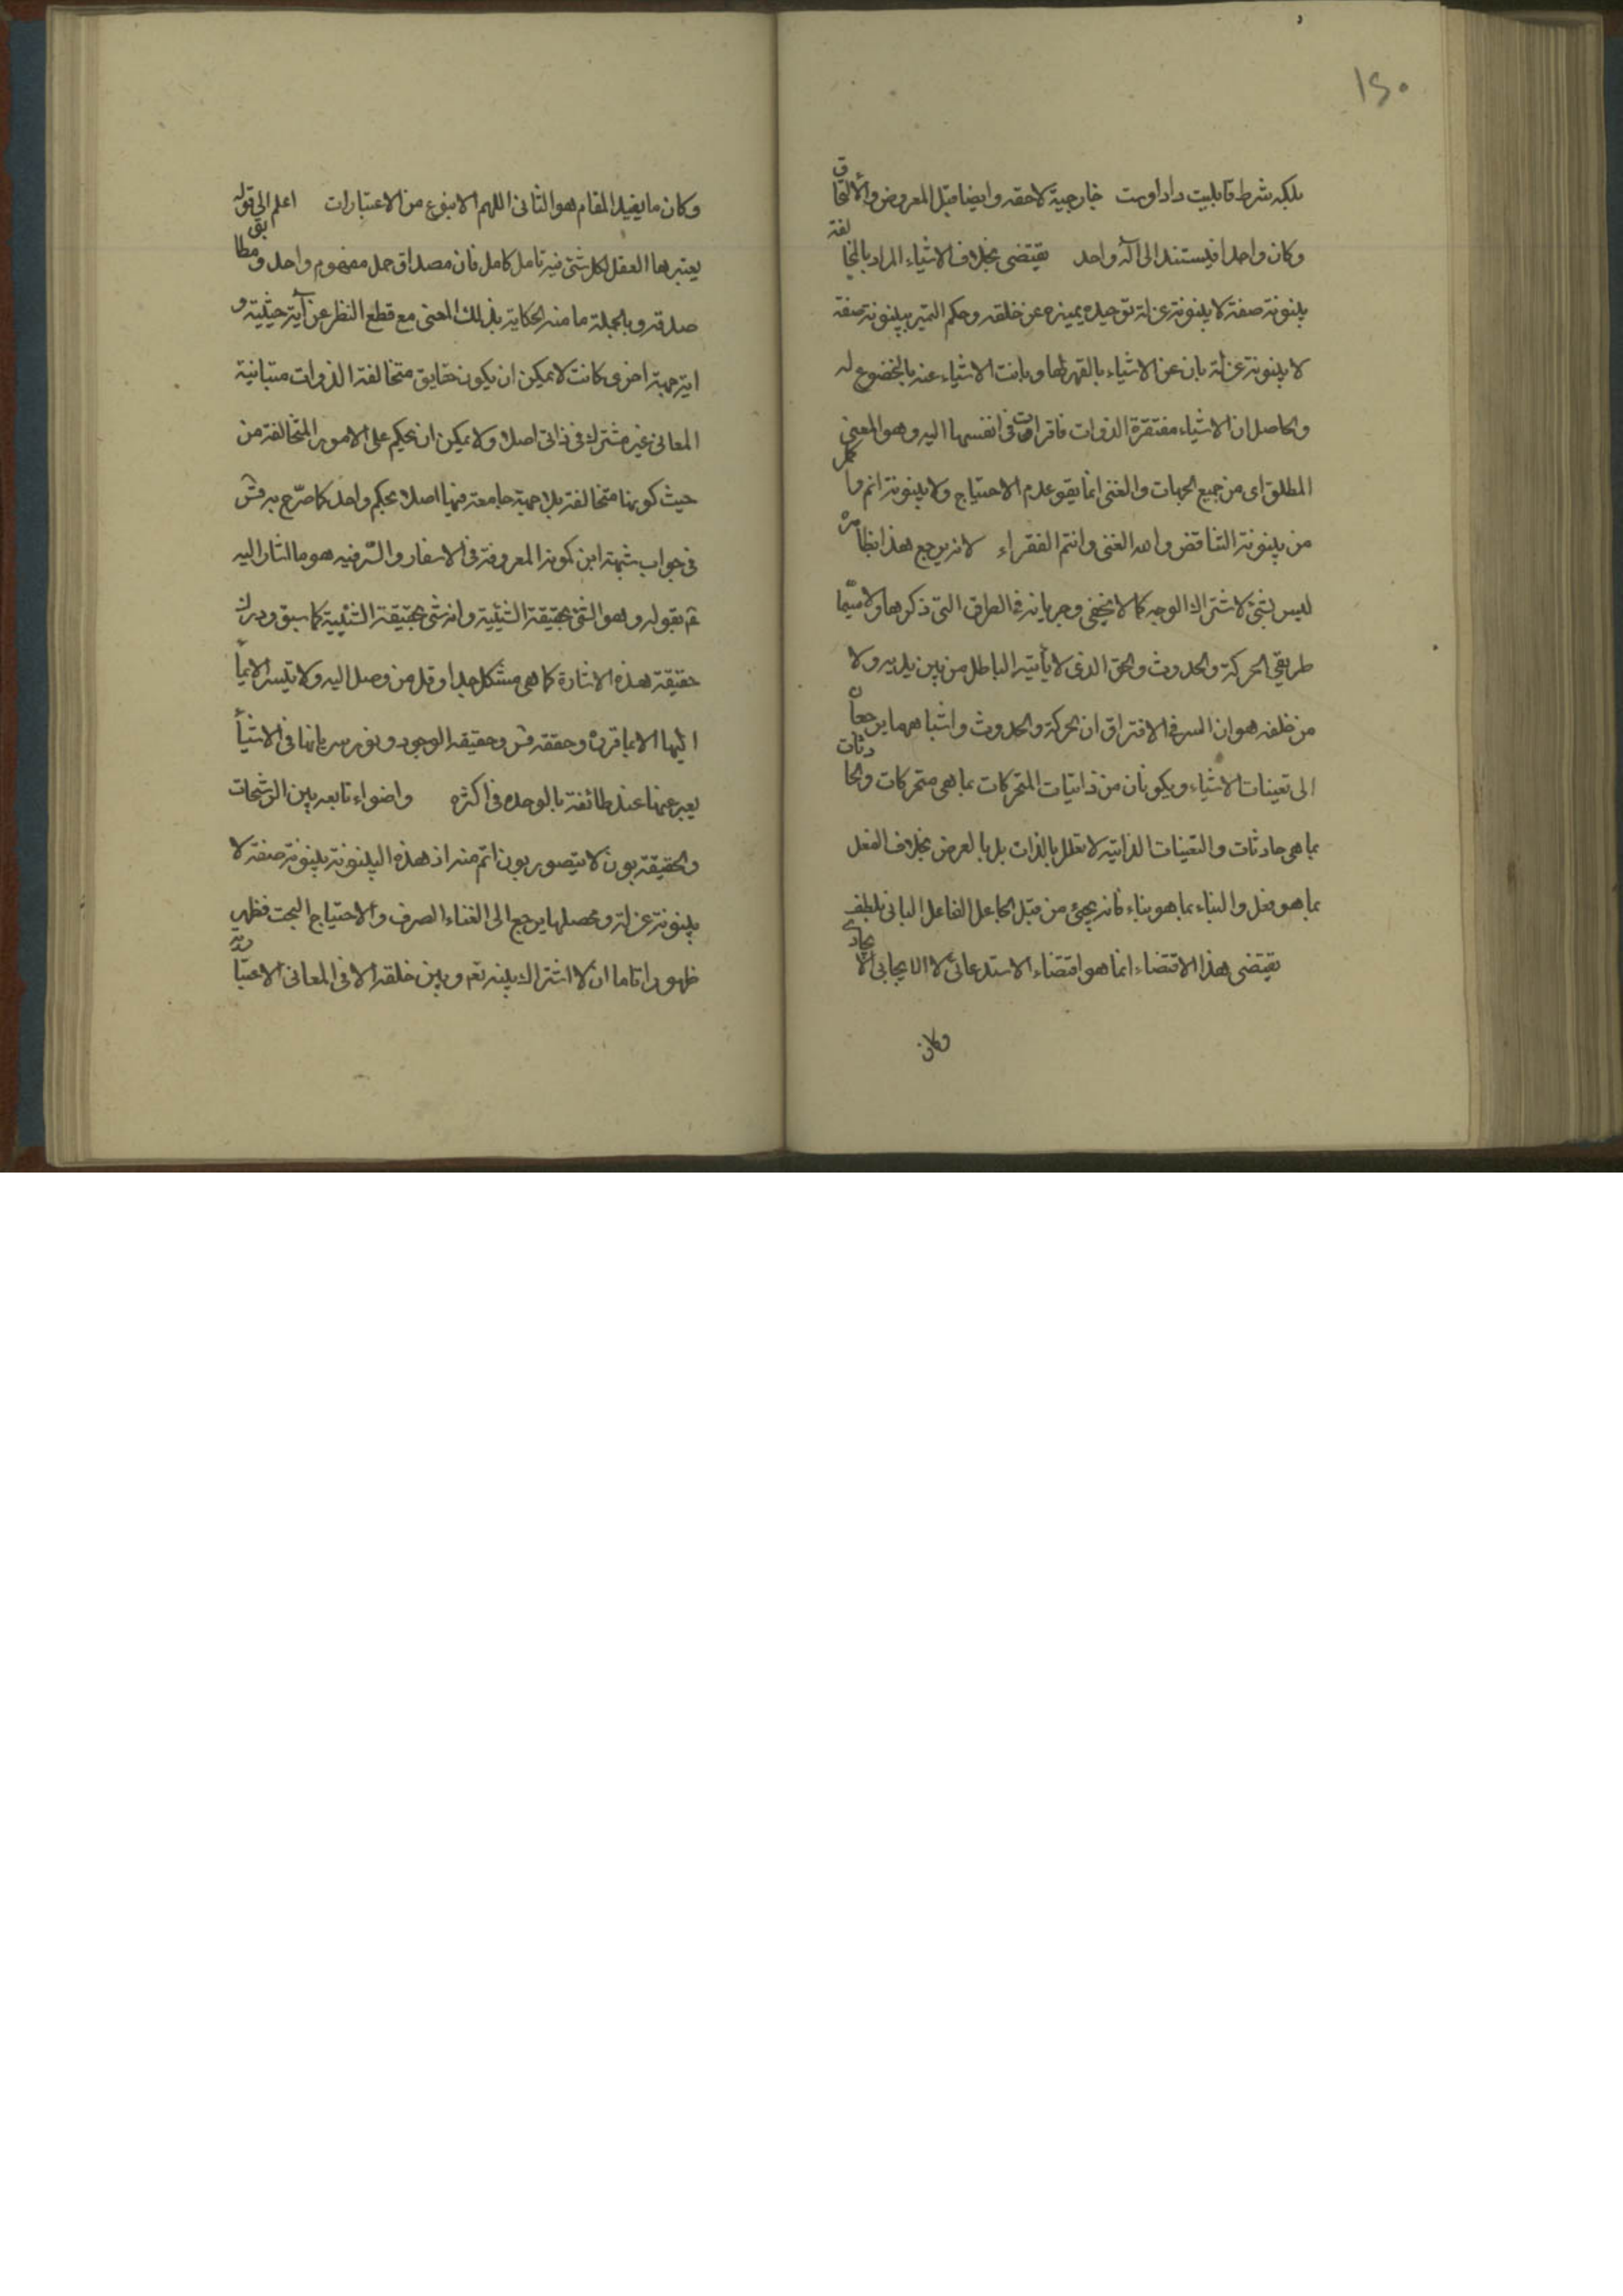 ١٥٠
بلكه شرط قابليت داد اوست خارجية لاحقه وايضا قبل المعروض والالحاق
وكان واحدا فليستند الى اله واحد يقتضى بخلاف الاشياء المراد بالمخالفة
بينونة صفة لا بينونة عزلة توحيده يميزه عن خلقه وحكم التميز بينونة صفة
لا بينونة عزلة بان عن الاشياء بالقهر لها وبانت الاشياء عنه بالخضوع له
والحاصل ان الاشياء مفتقرة الذوات فاقرات فى انفسها اليه وهو المعنى
المطلق اى من جميع الجهات والغنى انما يقو عدم الاحتياج ولا بينونة اتم واكمل
من بينونة التناقض والله الغنى وانتم الفقراء لانه يرجع هذا بظاهره
ليس بشئ لاشتراك الوجه كما لا يخفى وجريانه فى الطرق التى ذكرها ولا سيّما
طريقى الحركة والحدوث والحق الذى لا يأتيه الباطل من بين يديه ولا
من خلفه هو ان السر فى الافتراق ان الحركة والحدوث واشباههما يرجعان
الى تعينات الاشياء ويكونان من ذاتيات المتحركات بما هى متحركات والحادثات
بما هى حادثات والتعينات الذاتيه لا تعلل بالذات بل بالعرض بخلاف الفعل
بما هو فعل والبناء بما هو بناء فانه يجئ من قبل الجاعل الفاعل البانى بلطفه
يقتضى هذا الاقتضاء انما هو اقتضاء الاستدعائى لا الايجابى الايجادى
وكان
وكان ما يفيد المقام هو الثانى اللهم الا بنوع من الاعتبارات اعلم الى قوله
يعتبرها العقل لكل شئ فيه تامل كامل فان مصداق حمل مفهوم واحد ومطابق
صدقه وبالجملة ما منه الحكاية بذلك المعنى مع قطع النظر عن آية حيثية و
اية جهة اخرى كانت لا يمكن ان يكون حقايق متخالفة الذوات متباينة
المعانى غير مشترك فى ذاتى اصلا ولا يمكن ان يحكم على الامور المتخالفة من
حيث كونها متخالفة بلا جهة جامعة فيها اصلا بحكم واحد كما صرّح به قدس
فى جواب شبهة ابن كمونه المعروفة فى الاسفار والسّر فيه هو ما اشار اليه
ع بقوله وهو الشئ بحقيقة الشيئية وانه شئ بحقيقة الشيئية كما سبق ودرك
حقيقة هذه الاشارة كما هى مشكل جدا وقل من وصل اليه ولا يتيسر الايماء
اليها الا بما قرره وحققه قدس وحقيقه الوجود ونور سريانها فى الاشياء
يعبر عنها عند طائفة بالوحده فى اكثره واضواء تابعه بين الرشحات
والحقيقة بون لا يتصور بون اتم منه اذ هذه البينونة بينونة صفة لا
بينونة عزلة ومحصلها يرجع الى الغناء الصرف والاحتياج البحت فظهر
ظهورا تاما ان لا اشتراك بينه تعم وبين خلقه الا فى المعانى الاعتبارية